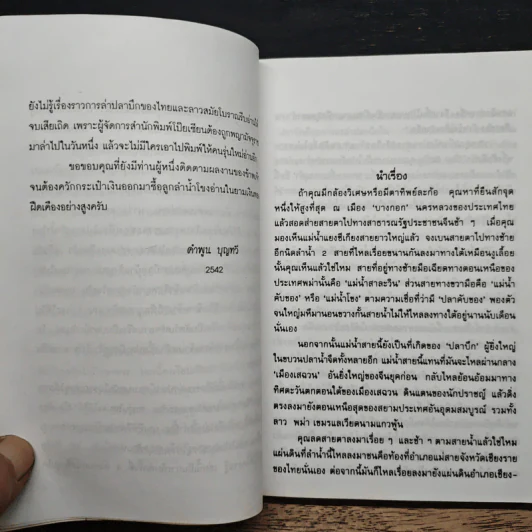 ยังไม่รู้เรื่องราวการล่าปลาบึกของไทยและลาวสมัยโบราณรีบอ่านให้
จบเสียเถิด เพราะผู้จัดการสำนักพิมพ์โป๊ยเซียนต้องถูกพญามัจจุราช
มาล่าไปในวันหนึ่ง แล้วจะไม่มีใครเอาไปพิมพ์ให้คนรุ่นใหม่อ่านอีก
ขอขอบคุณที่ยังมีท่านผู้หนึ่งติดตามผลงานของข้าพเจ้า
จนต้องควักกระเป๋าเงินออกมาซื้อลูกลำน้ำโขงอ่านในยามเงินทอง
ฝืดเคืองอย่างสูงครับ
คำพูน บุญทวี
2542
นำเรื่อง
ถ้าคุณมีกล้องวิเศษหรือมีตาทิพย์ละก้อ คุณหาที่ยืนสักจุด
หนึ่งให้สูงที่สุด ณ เมือง 'บางกอก' นครหลวงของประเทศไทย
แล้วสอดส่ายสายตาไปทางสาธารณรัฐประชาชนจีนช้า ๆ เมื่อคุณ
มองเห็นแม่น้ำแยงซีเกียงสายยาวใหญ่แล้ว จงเบนสายตาไปทางซ้าย
อีกนิดลำน้ำ 2 สายที่ไหลเรื่อยขนานกันลงมาทางใต้เหมือนงูเลื้อย
นั้นคุณเห็นแล้วใช่ไหม สายที่อยู่ทางซ้ายมือเฉียดทางตอนเหนือของ
ประเทศพม่านั้นคือ 'แม่น้ำสาละวิน' ส่วนสายทางขวามือคือ 'แม่น้ำ
คับของ' หรือ 'แม่น้ำโขง' ตามความเชื่อที่ว่ามี 'ปลาคับของ' พองตัว
จนใหญ่มหึมานอนขวางกั้นสายน้ำไม่ให้ไหลลงทางใต้อยู่นานนับเดือน
นั่นเอง
นอกจากนั้นแม่น้ำสายนี้ยังเป็นที่เกิดของ 'ปลาบึก' ผู้ยิ่งใหญ่
ในขบวนปลาน้ำจืดทั้งหลายอีก แม่น้ำสายนี้แทนที่มันจะไหลผ่านกลาง
'เมืองเสฉวน' อันยิ่งใหญ่ของจีนยุคก่อน กลับไหลย้อนอ้อมมาทาง
ทิศตะวันตกตอนใต้ของเมืองเสฉวน ดินแดนของนักปราชญ์ แล้วดิ่ง
ตรงลงมายังตอนเหนือสุดของสยามประเทศอันอุดมสมบูรณ์ รวมทั้ง
ลาว พม่า เขมรและเวียดนามแกวพู้น
คุณลดสายตาลงมาเรื่อย ๆ และช้า ๆ ตามสายน้ำแล้วใช่ไหม
แผ่นดินที่ลำน้ำนี้ไหลลงมาชนคือท้องที่อำเภอแม่สายจังหวัดเชียงราย
ของไทยนั่นเอง ต่อจากนี้มันก็ไหลเรื่อยลงมายังแผ่นดินอำเภอเชียง-